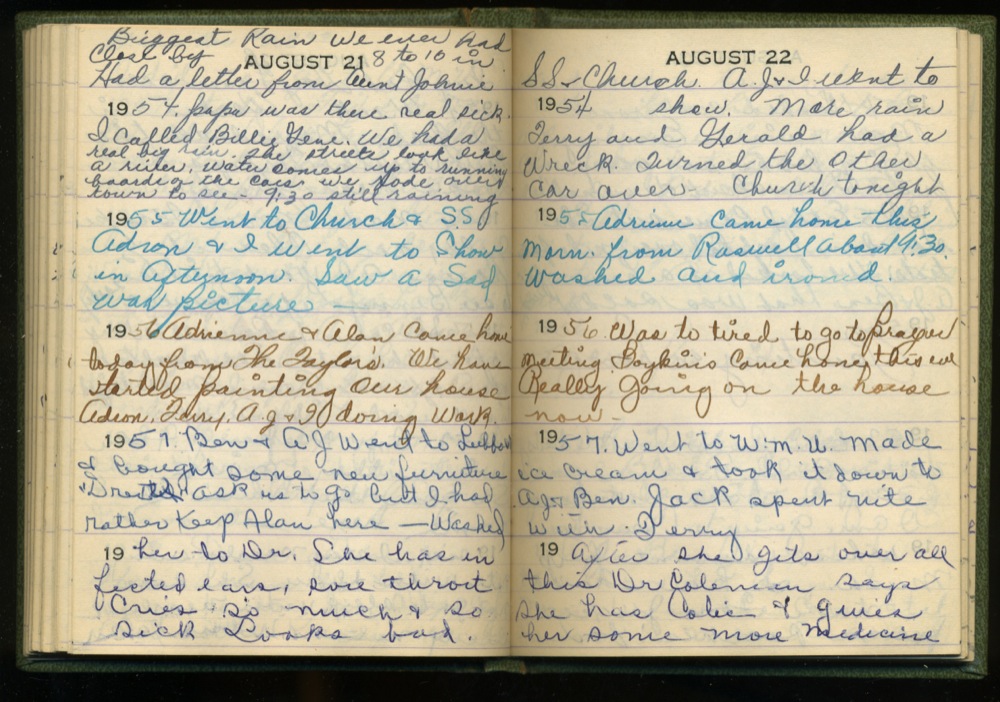 Biggest Rain we ever had
Close by 8 to 10 in
AUGUST 21
Had a letter from Aunt Johnie
1954. papa was there real sick.
I Called Billie Gene. We had a
real big rain. The streets look like
a river. water comes up to running
boards on the cars. we rode over
town to see - 9:30 still raining
1955 Went to Church & S.S.
Adron & I went to Show
in Afternoon. Saw a Sad
war picture —
1956 Adrienne & Alan Came home
today from The Taylor's. We have
started painting our house
Adron, Terry, A.J. & I doing work.
1957. Ben & A J Went to Lubbock
& bought some new furniture
ask us to go but I had
rather Keep Alan here — Washed
19 her to Dr. She has in
fected ears, sore throat
Cries so much & so
sick Looks bad.
AUGUST 22
SS & Church. A.J. & I went to
1954 show. More rain
Terry and Gerald had a
Wreck. Turned the Other
Car over - Church tonight
1955 Adrienne came home this
morn. from Roswell about 9:30.
Washed and ironed
1956. Was to tired to go to prayer
meeting. Boykins Come home this eve
Really going on the house
now -
1957. Went to W.M.U. Made
ice cream & took it down to
A.J. & Ben. Jack spent nite
with Terry
19 After she gits over all
this Dr Coleman says
she has Colic & gives
her some more medicine